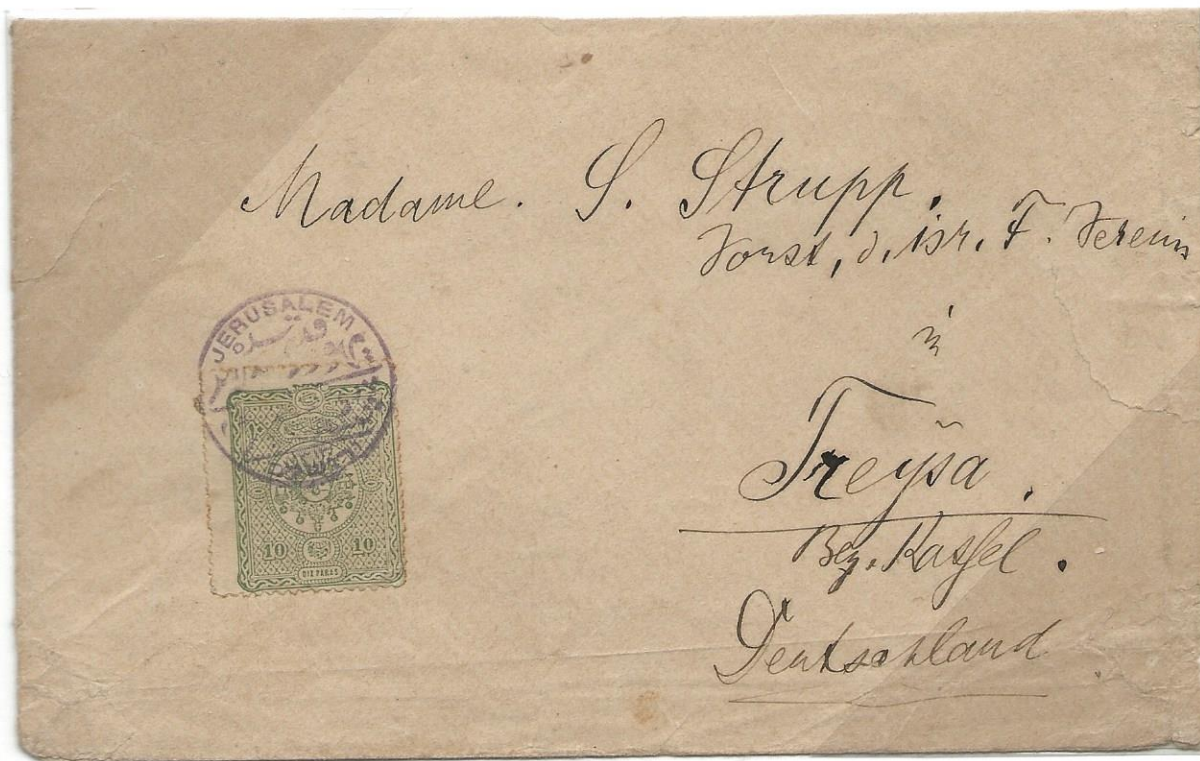 Madame. S. Strupp.
Vorst, d. isr. F. Verein
in
Treÿsa.
Bez. Kassel.
Deutschland
JERUSALEM
10 10
DIX PARAS